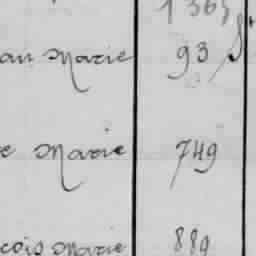 1365
an Marie 93
e Marie 749
cois Marie 889